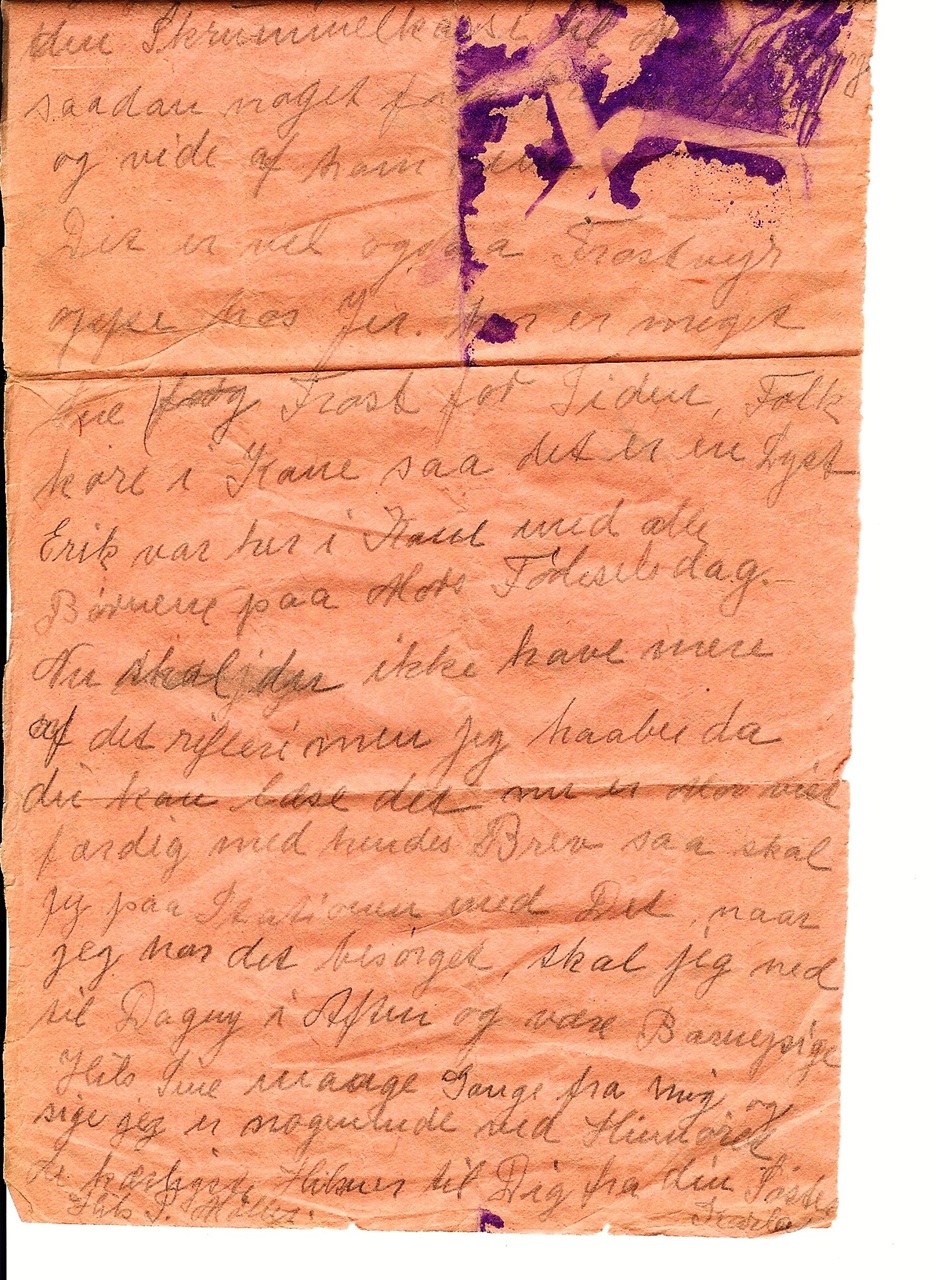 din Skrummelkasse til
saadan noget
og vide af ham
Det er vel ogsaa Frostvejr
oppe hos Jer. her er meget
Sne og Frost for Tiden, Folk
køre i Kane saa det er en Lyst
Erik var her i Kane med alle
Børnene paa Mors Fødselsdag.
Nu skal du ikke have mere
af det rifleri men jeg haaber da
du kan læse det nu er Mor vist
færdig med hendes Brev saa skal
jeg paa Stationen med Det, naar
jeg har det besørget, skal jeg ned
til Dagny i Aften og være Barnepige
Hils Sine mange Gange fra mig og
sige jeg er nogenlunde ved
De kærligste Hilsner til Dig fra din Søster
Hils S. Møller. Karla